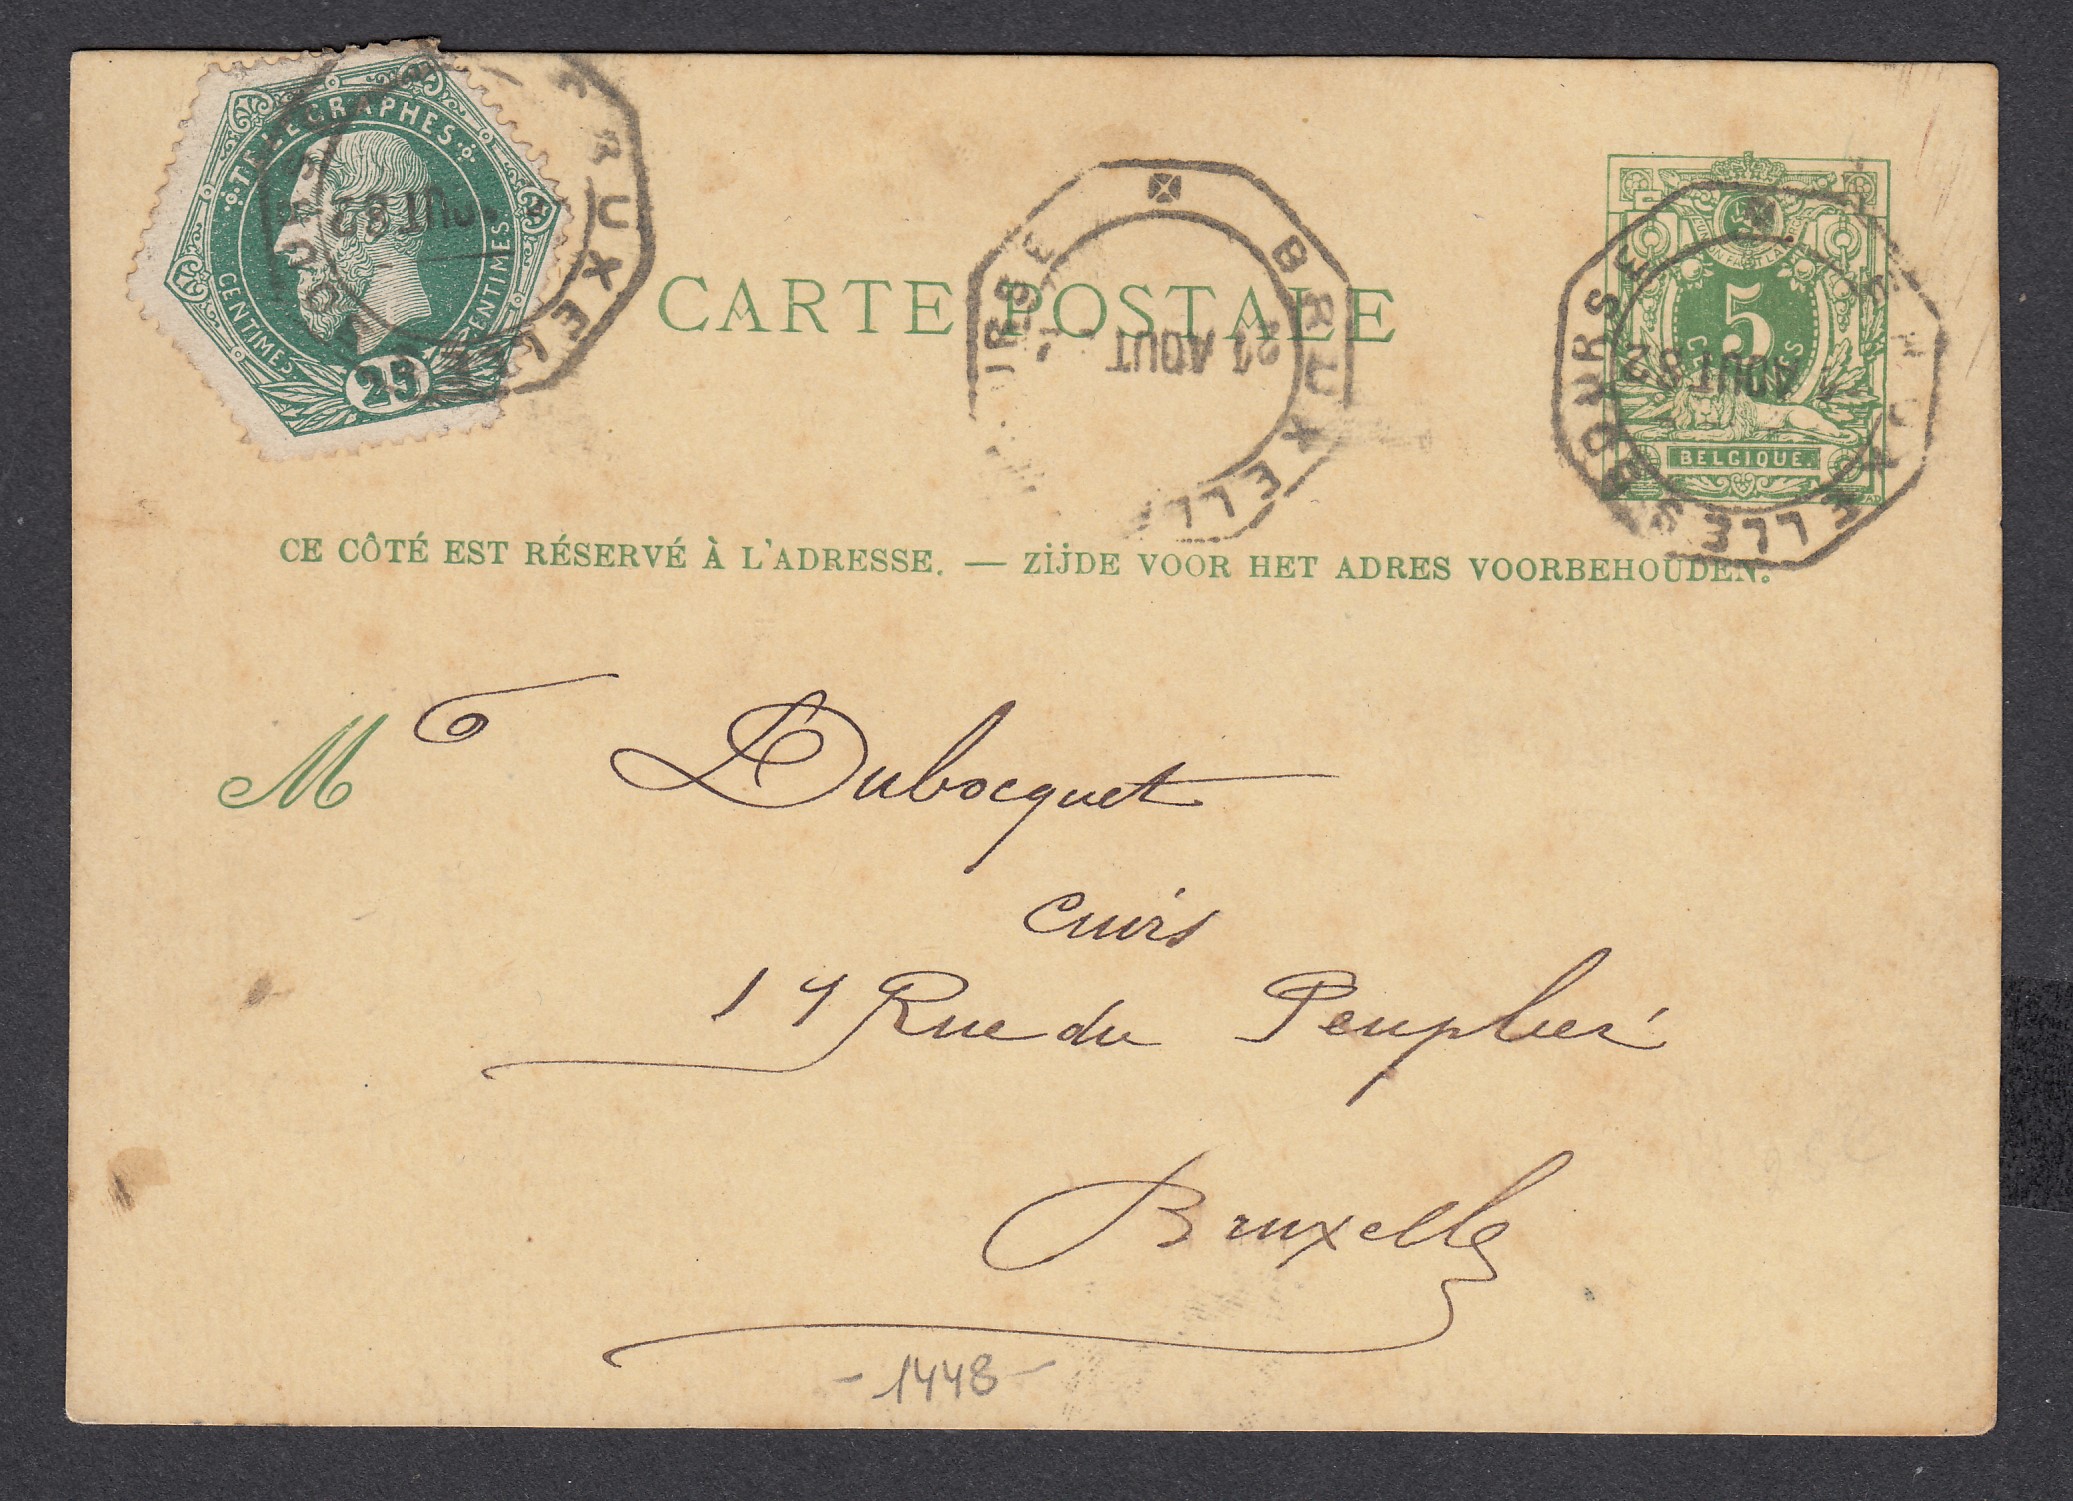 TÉLÉGRAPHES
CENTIMES. 25 CENTIMES
BRUXELLES BOURSE
AOUT 82
CARTE POSTALE
BRUXELL URSE
21 AOUT
5
CENTIMES
BELGIQUE.
BRUXELLES BOURSE
AOUT 82
CE CÔTÉ EST RÉSERVÉ À L'ADRESSE. — ZIJDE VOOR HET ADRES VOORBEHOUDEN.
M Dubocquet
Cuirs
Rue du Peuplier
Bruxelles
- 1448 -